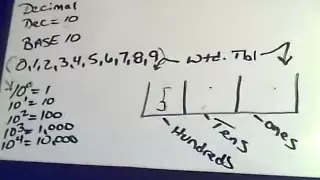 Decimal
Dec = 10
BASE 10
(0,1,2,3,4,5,6,7,8,9) wtd. Tbl
10⁰ = 1
10¹ = 10
10² = 100
10³ = 1,000
10⁴ = 10,000
5
Hundreds
Tens
ones